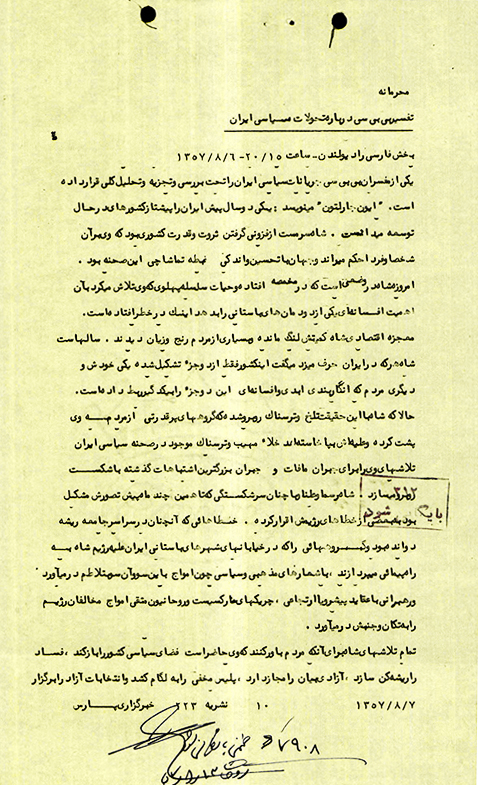 محرمانه
تفسیر بی بی سی درباره تحولات سیاسی ایران
بخش فارسی رادیو لندن - ساعت ۲۰/۱۵ - ۱۳۵۷/۸/۶
یکی از مفسران بی بی سی جریانات سیاسی ایران را تحت بررسی و تجزیه و تحلیل کلی قرار داده
است. "ایون چارلتون" مینویسد : یکی دو سال پیش ایران را پیشتاز کشورهای در حال
توسعه میدانست . شاه سرمست از فزونی گرفتن ثروت و قدرت کشوری بود که وی بر آن
شخصا و فردا حکم میراند و جهان با تحسین و اندکی غبطه تماشاچی این صحنه بود .
امروز شاه در وضعی است که در مخمصه افتاده و حیات سلسله پهلوی که وی تلاش میکرد بآن
اهمیت افسانه ای یکی از دودمان های باستانی را بدهد اینک در خطر افتاده است.
معجزه اقتصادی شاه کمیتش لنگ مانده و بسیاری از مردم رنج و زیان دیدند . سالهاست
شاه هر که در ایران حرف میزد میگفت اینکشور فقط از دو جزء تشکیل شده یکی خودش و
دیگری مردم که انگار پیوندی ابدی و افسانه ای این دو جزء را بیکدیگر ربط داده است.
حالا که شاه با این حقیقت تلخ و ترسناک روبرو شده که گروههای پرقدرتی از مردم به وی
پشت کرده و علیه اش بپا خاسته اند خلاء مهیب و ترسناک موجود در صحنه سیاسی ایران
تلاشهای وی را برای جبران مافات و جبران بزرگترین اشتباهات گذشته با شکست
روبرو میسازد . شاه رسما و علنا و با چنان سرشکستگی که تا همین چند ماه پیش تصورش مشکل
بود به بعضی از خطاهای رژیمش اقرار کرده . خطاهائی که آنچنان در سراسر جامعه ریشه
دوانده بود و گروههائی را که در خیابانهای شهرهای باستانی ایران علیه رژیم شاه به
راه پیمائی میپردازند ، با شعارهای مذهبی و سیاسی چون امواج باین سو و آن سو متلاطم در میاورد
و رهبرانی با عقاید پیشرو یا ارتجاعی ، چریکهای مارکسیست و روحانیون متقی امواج مخالفان رژیم
را به تکان و جنبش در میآورد .
تمام تلاشهای شاه برای آنکه مردم باور کنند که وی حاضر است فضای سیاسی کشور را باز کند ، فساد
را ریشه کن سازد ، آزادی بیان را مجاز دارد ، پلیس مخفی را به لگام کشد و انتخابات آزاد را برگزار
۱۳۵۷/۸/۷ ۱۰ نشریه ۲۲۳ خبرگزاری پارس
۳۱۲
بایگانی شود
۷۹۰۸